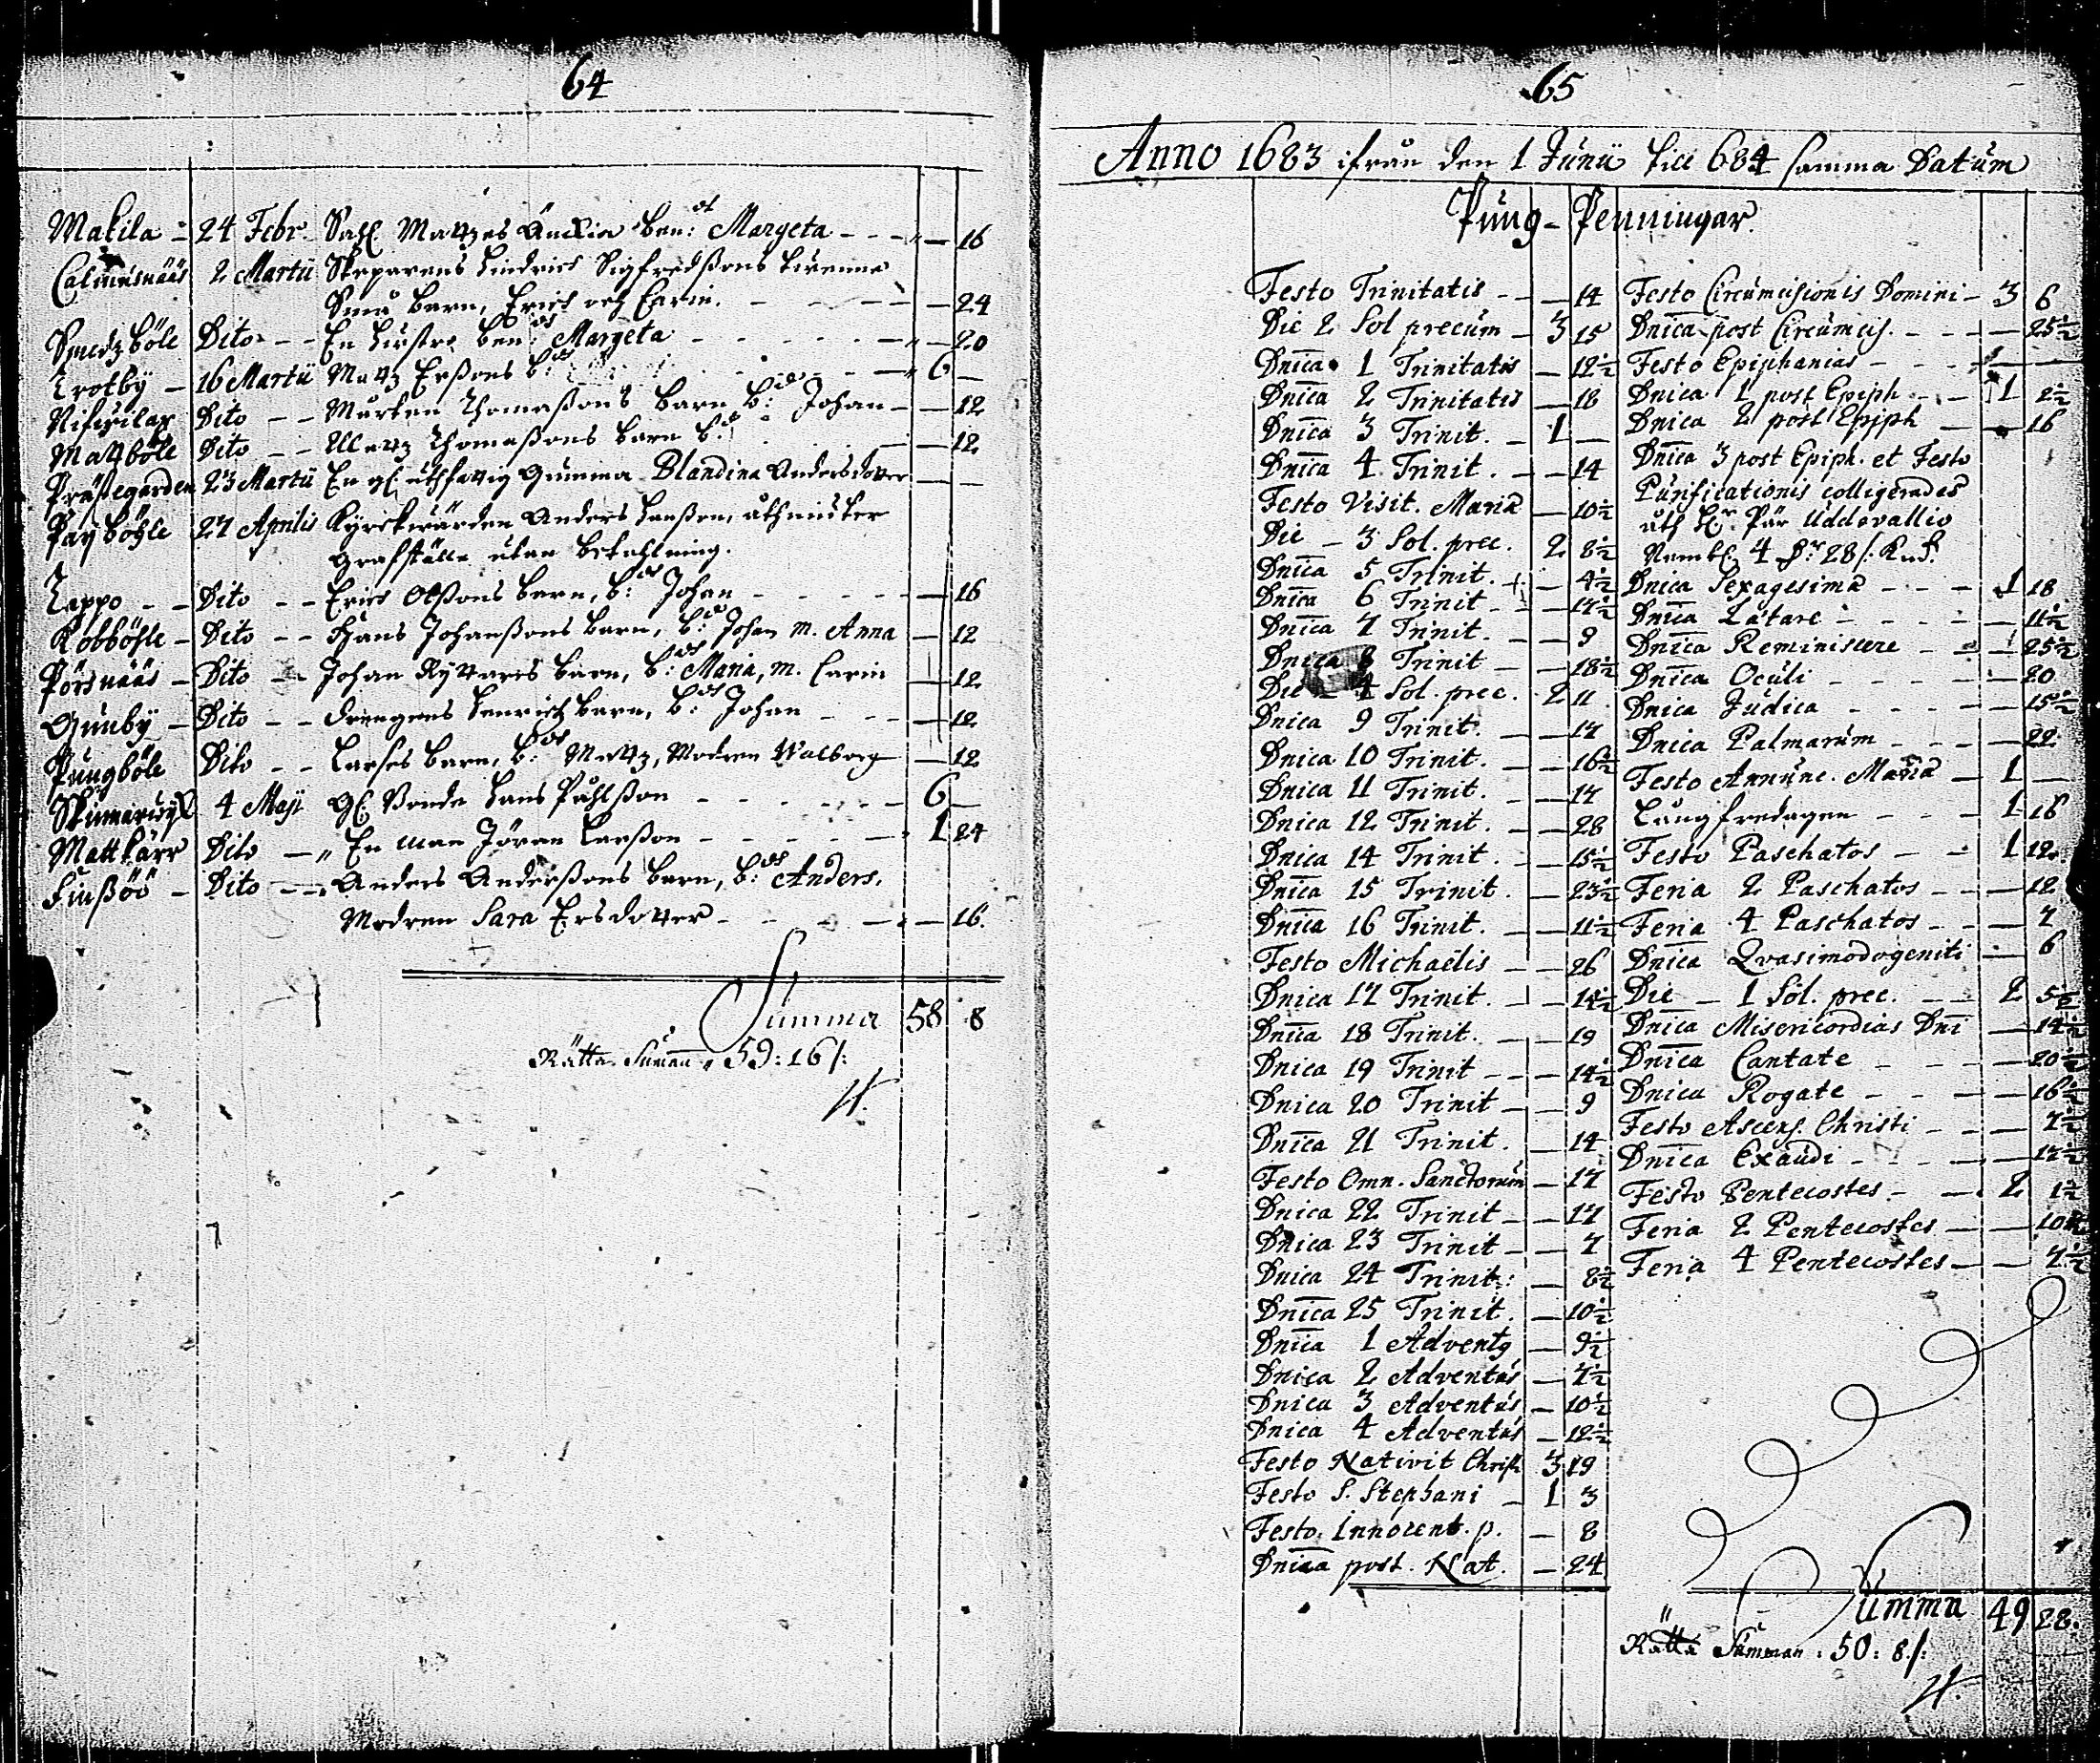 64
Makila - 24 Febr. Sahl. Mattzes Änckia ben:d Margeta - - - " - 16
Calmnsnääs 2 Martii Skeparens Hindrich Sigfredßons tvenne
Små barn, Erich och Carin. - - - - 24
Smedzböle Dito - - En hustro ben:d Margeta - - - - " - 20
Trotby - 16 Martii Mattz Erßons b:d - - - " 6 -
Nifwilax Dito - - Mårten Thomaßons barn b:d Johan - - 12
Mattböle Dito - - Mattz Thomaßons barn b:d - - 12
Prästegården 23 Martii En gl. uthfattig Gumma Blandina Andersdotter - -
Payböhle 27 Aprilis Kyrckwärden Anders Hanßon, åthniuter
Grafställe utan betahlning.
Lappo - - Dito - - Erich Olßons barn, b:d Johan - - - - 16
Kobböhle - Dito - - Hans Johanßons barn, b:d Johan m. Anna - 12
Pörsnääs - Dito - - Johan Ryttares barn, b:d Maria, m. Carin - 12
Gunby - Dito - - Drengens Henrich barn, b:d Johan - - - 12
Pungböle Dito - - Larses barn, b:d Mattz, Modren Walborg - 12
Skinnarwyk 4 Maji gl. Bonde Hans Påhlßon - - - - 6 -
Mattkärr Dito - " En man Jöran Larßon - - - - 1 24
Finßöö - Dito - - Anders Anderßons barn, b:d Anders.
Modren Sara Ersdotter - - - - 16.
Summa 58 8
Rätta Suman " 59: 16 /:
65
Anno 1683 ifrån den 1 Junii till 684 samma Datum
Pung-Penningar.
Festo Trinitatis - - - 14
Die 2 Sol precum - 3 15
Dnica 1 Trinitatis - 12½
Dnica 2 Trinitatis - 18
Dnica 3 Trinit. - 1 -
Dnica 4 Trinit. - - 14
Festo Visit. Mariæ - 10½
Die - 3 Sol. prec. 2 8½
Dnica 5 Trinit. - - 4½
Dnica 6 Trinit - - - 17½
Dnica 7 Trinit. - - 9
Dnica 8 Trinit - - 18½
Die - 4 Sol. prec. 2 11
Dnica 9 Trinit. - - 17
Dnica 10 Trinit. - - 16½
Dnica 11 Trinit. - - 17
Dnica 12 Trinit. - - 28
Dnica 14 Trinit. - - 15½
Dnica 15 Trinit. - 23½
Dnica 16 Trinit. - - 11½
Festo Michaelis - - 26
Dnica 17 Trinit. - - 14½
Dnica 18 Trinit. - - 19
Dnica 19 Trinit - - - 14½
Dnica 20 Trinit - - 9
Dnica 21 Trinit. - 14
Festo Omn. Sanctorum - 17
Dnica 22 Trinit - - 17
Dnica 23 Trinit - - 7
Dnica 24 Trinit: - 8½
Dnica 25 Trinit. - 10½
Dnica 1 Adventg - 9½
Dnica 2 Adventús - 7½
Dnica 3 Adventús - 10½
Dnica 4 Adventús - 12½
Festo Nativit Christi 3 19
Festo S. Stephani - 1 3
Festo Innocent. p. - 8
Dnica post. Nat. - 24
Festo Circumcisionis Domini - 3 6
Dnica post Circumcis. - - - 25½
Festo Epiphanias - - - -
Dnica 1 post Epiph - - 1 2½
Dnica 2 post Epiph - - 16
Dnica 3 post Epiph. et Festo
Purificationis colligerades
åth Hr. Pär Uddevallio
Nembl. 4 Dr 28 /. K.m.
Dnica Sexagesima - - - 1 18
Dnica Lætare - - - - 11½
Dnica Reminiscere - - - 25½
Dnica Oculi - - - - 20
Dnica Judica - - - - 15½
Dnica Palmarum - - - 22
Festo Annunc. Mariæ - 1 -
Långfredagen - - - 1 16
Festo Paschatos - - 1 12
Feria 2 Paschatos - - - 12
Feria 4 Paschatos - - - 7
Dnica Qvasimodogeniti - 6
Die - 1 Sol. prec. - - 2 5½
Dnica Misericordias Dni - 14½
Dnica Cantate - - - - 20½
Dnica Rogate - - - - 16½
Festo Ascens. Christi - - - 7½
Dnica Exaudi - - - - 17½
Festo Pentecostes - - 2 1½
Feria 2 Pentecostes - - 10½
Feria 4 Pentecostes - - 7½
Summa 49 28.
Rätta Summan : 50: 8./: